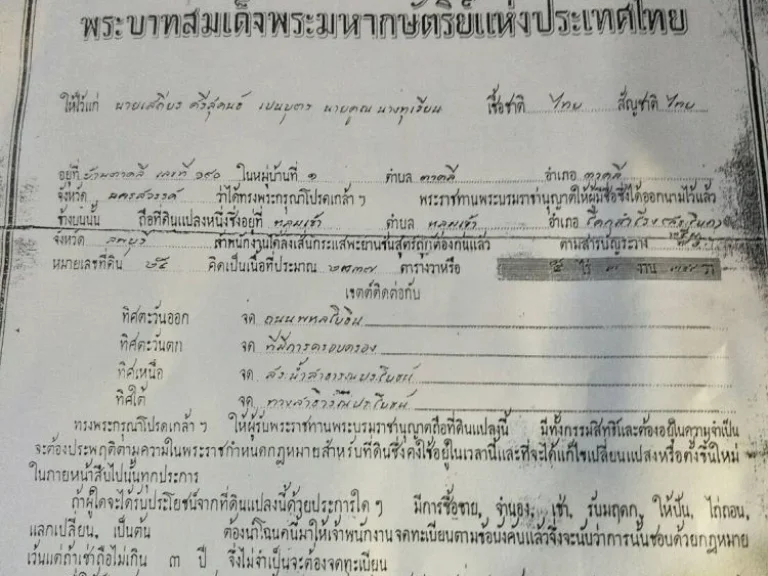 พระบาทสมเด็จพระมหากษัตริย์แห่งประเทศไทย
ให้ไว้แก่ นายเสถียร ศรีสุคนธ์ เปนบุตร นายคูณ นางทุเรียน เชื้อชาติ ไทย สัญชาติ ไทย
อยู่ที่ บ้านตาคลี เลขที่ ๑๙๐ ในหมู่บ้านที่ ๑ ตำบล ตาคลี อำเภอ ตาคลี
จังหวัด นครสวรรค์ ว่าได้ทรงพระกรุณาโปรดเกล้า ฯ พระราชทานพระบรมราชานุญาตให้ผู้มีชื่อซึ่งได้ออกนามไว้แล้ว
ข้างบนนั้น ถือที่ดินแปลงหนึ่งซึ่งอยู่ที่ หลุมเข้า ตำบล หลุมเข้า อำเภอ โคกสำโรง
จังหวัด ลพบุรี สำหนักงานได้ลงเส้นกระแสพะยานชันสูตร์ถูกต้องกันแล้ว ตามสารบัญระวาง
หมายเลขที่ดิน ๒๕ คิดเป็นเนื้อที่ประมาณ ตารางวาหรือ ไร่ งาน วา
เขตต์ติดต่อกับ
ทิศตะวันออก จด ถนนพหลโยธิน
ทิศตะวันตก จด ที่มีการครอบครอง
ทิศเหนือ จด สระน้ำสาธารณประโยชน์
ทิศใต้ จด ทางสาธารณประโยชน์
ทรงพระกรุณาโปรดเกล้า ฯ ให้ผู้รับพระราชทานพระบรมราชานุญาตถือที่ดินแปลงนี้ มีทั้งกรรมสิทธิและต้องอยู่ในความจำเป็น
จะต้องประพฤติตามความในพระราชกำหนดกฎหมายสำหรับที่ดินซึ่งคงใช้อยู่ในเวลานี้และที่จะได้แก้ไขเปลี่ยนแปลงหรือตั้งขึ้นใหม่
ในภายหน้าสืบไปนั้นทุกประการ
ถ้าผู้ใดจะได้รับประโยชน์จากที่ดินแปลงนี้ด้วยประการใด ๆ มีการซื้อขาย, จำนอง, เช่า, รับมฤดก, ให้ปัน, ไถ่ถอน,
แลกเปลี่ยน, เป็นต้น ต้องนำโฉนดนี้มาให้เจ้าพนักงานจดทะเบียนตามข้อบังคับแล้วจึงจะนับว่าการนั้นชอบด้วยกฎหมาย
เว้นแต่ถ้าเช่าถือไม่เกิน ๓ ปี จึงไม่จำเป็นจะต้องจดทะเบียน